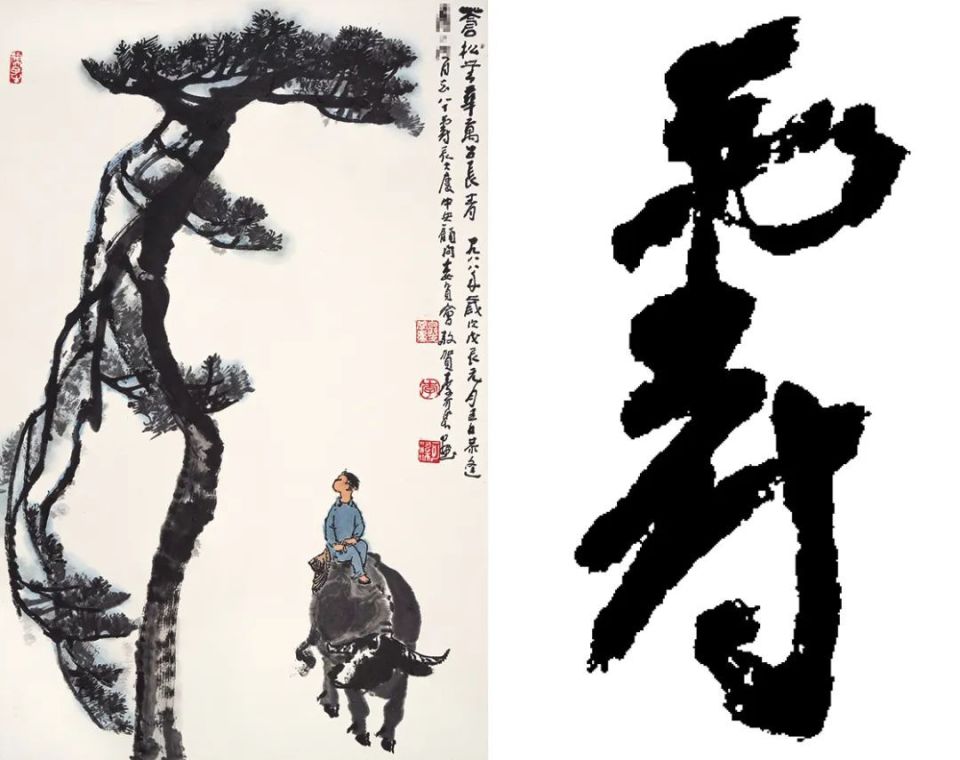 蒼松無華萬古長青 一九八八年歲次戊辰元月
八十壽辰大慶中央顧問委員會敬賀李可染畫
壽